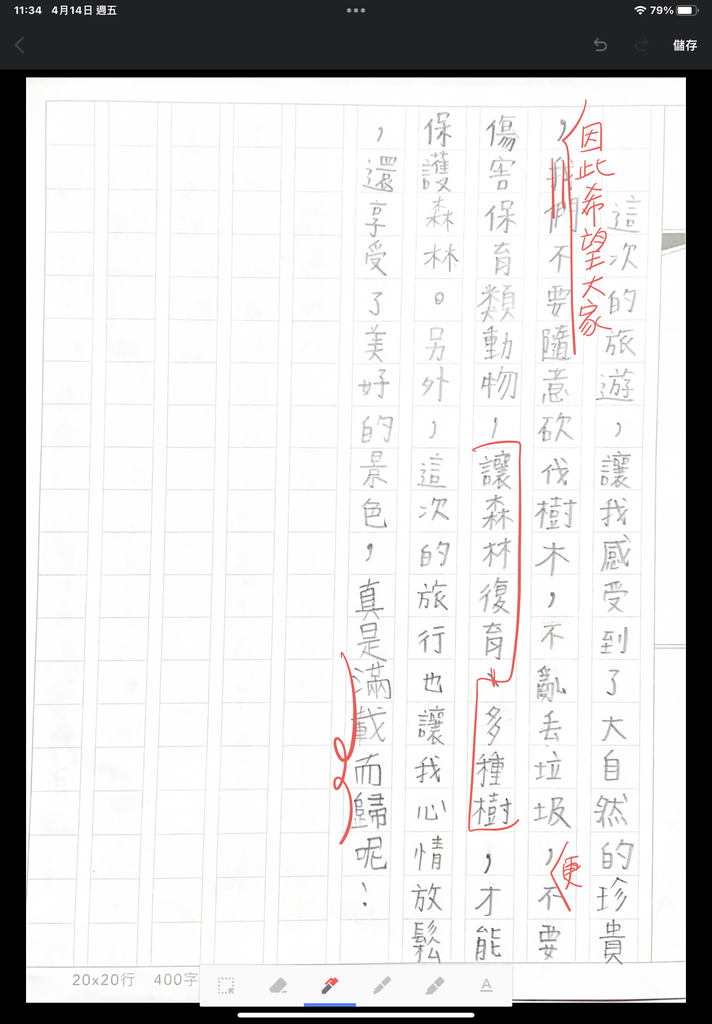 11:34 4月14日 週五
79%
儲存
這次的旅遊，讓我感受到了大自然的珍貴
因此希望大家
，我們不要隨意砍伐樹木，不亂丟垃圾，不要
更
傷害保育類動物，讓森林復育，多種樹，才能
保護森林。另外，這次的旅行也讓我心情放鬆
，還享受了美好的景色，真是滿載而歸呢！
20x20行 400字
A